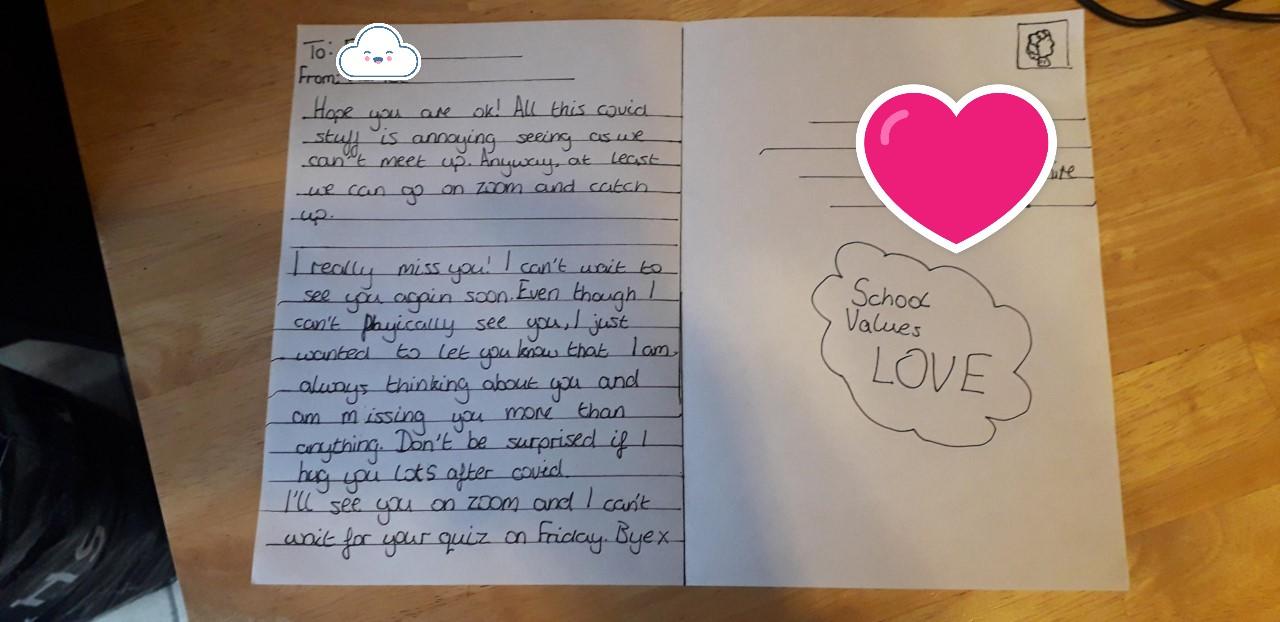 To:
From:
Hope you are ok! All this covid
stuff is annoying seeing as we
can't meet up. Anyway, at least
we can go on zoom and catch
up.
I really miss you! I can't wait to
see you again soon. Even though I
can't phyically see you, I just
wanted to let you know that I am
always thinking about you and
am missing you more than
anything. Don't be surprised if I
hug you lots after covid.
I'll see you on zoom and I can't
wait for your quiz on Friday. Bye x
School
Values
LOVE